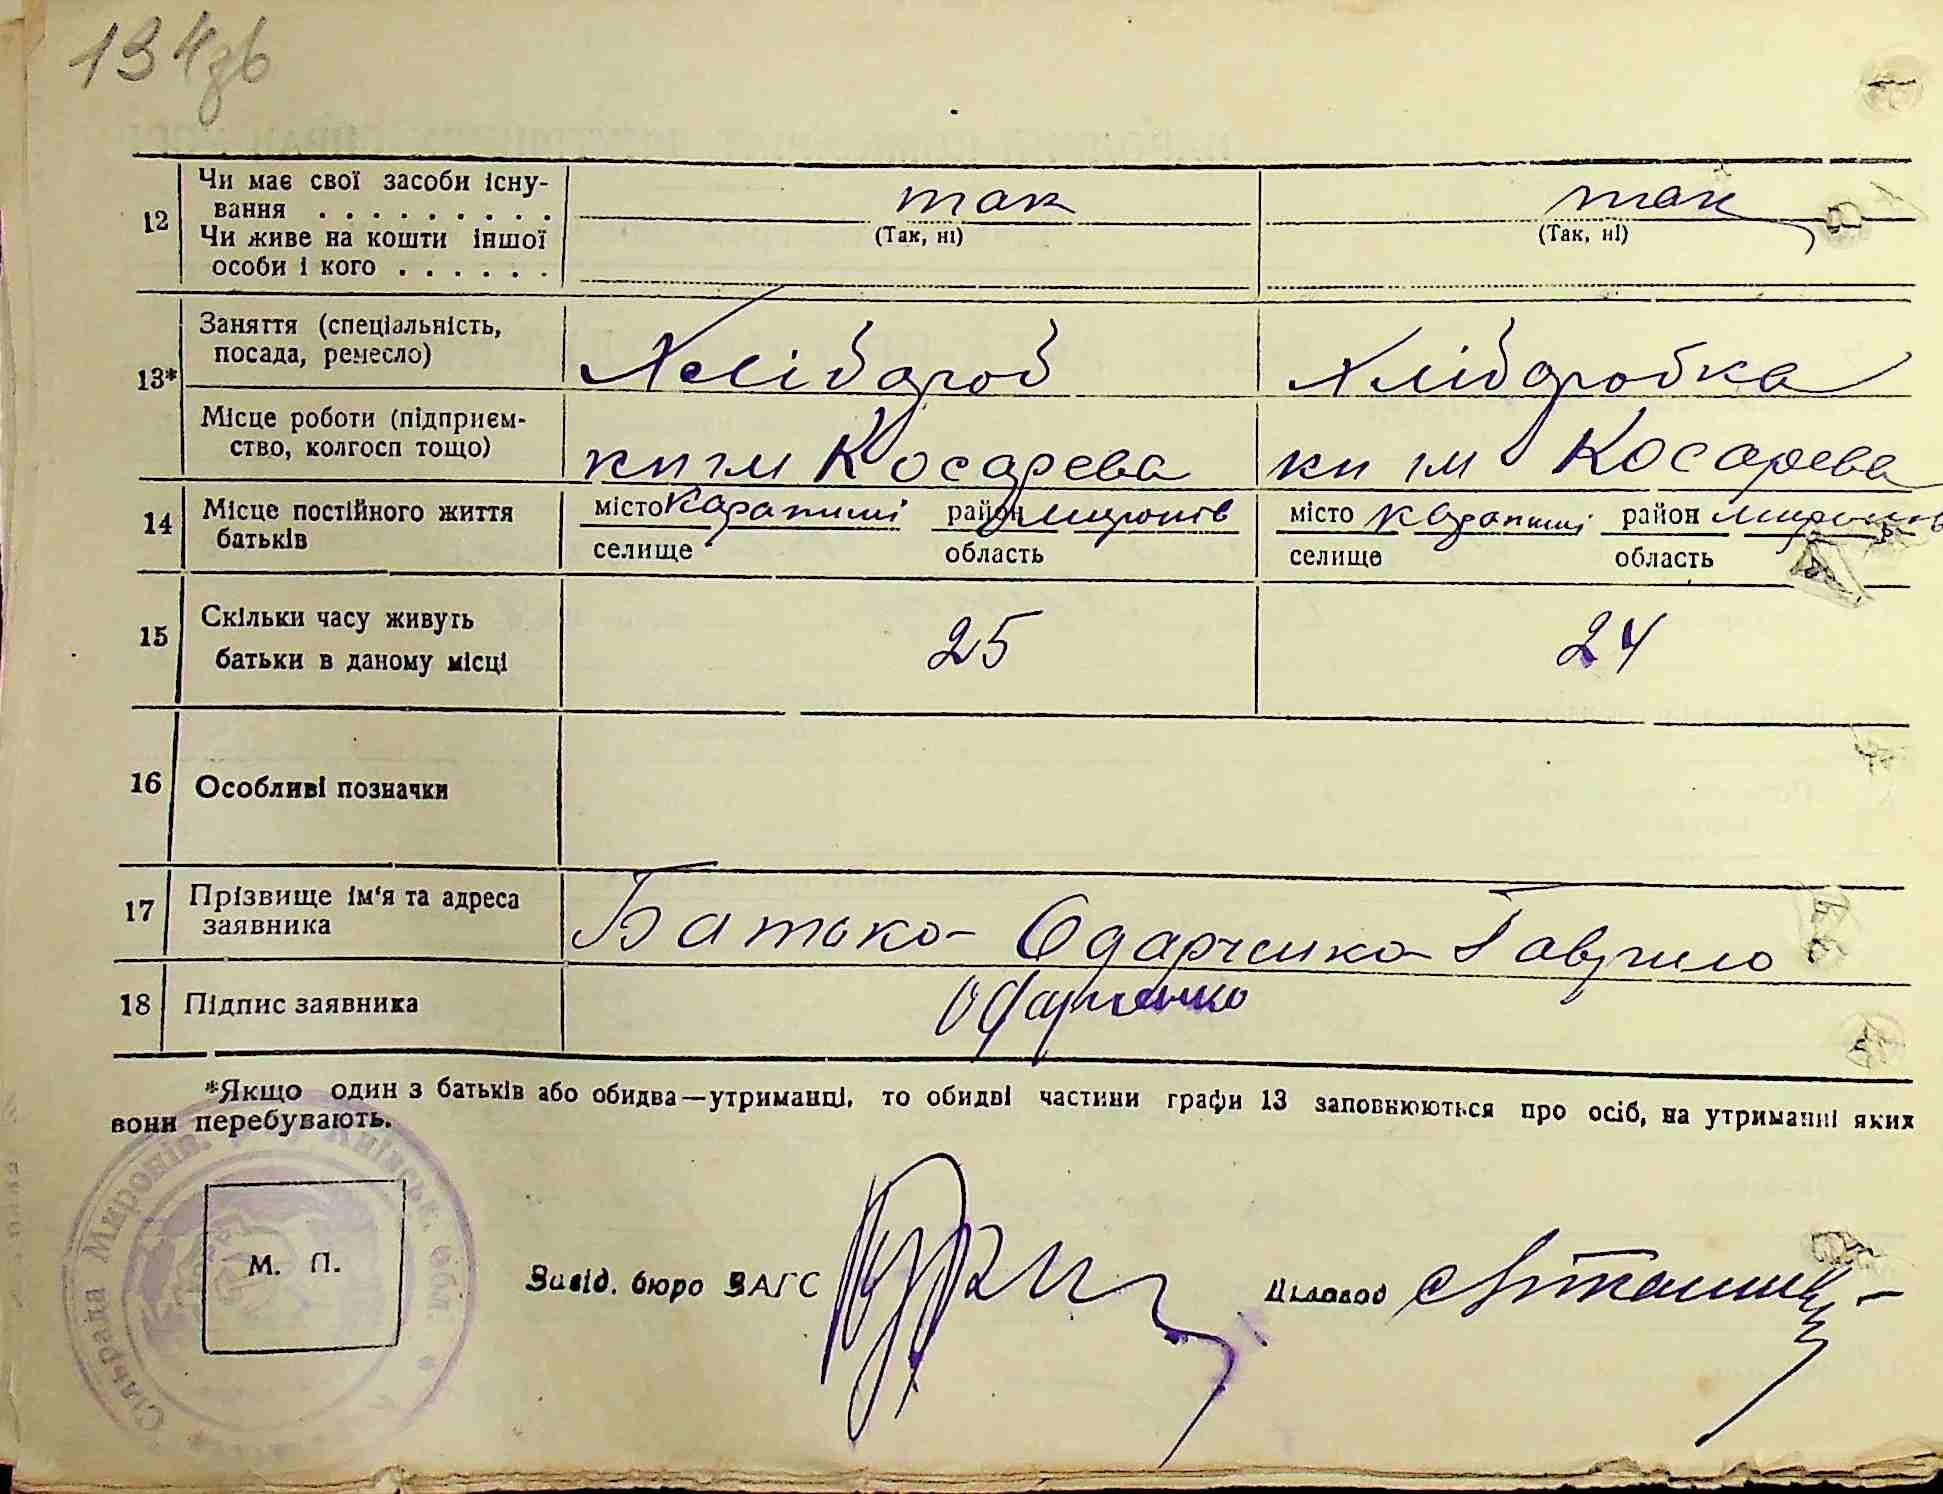 134зв
12 Чи має свої засоби існу-
вання . . . . . . . . . так так
Чи живе на кошти іншої (Так, ні) (Так, ні)
особи і кого . . . . . .
13* Заняття (спеціальність,
посада, ремесло) Хлібороб Хліборобка
Місце роботи (підприєм-
ство, колгосп тощо) кп ім Косарева кп ім Косарева
14 Місце постійного життя місто Карапиші район миронів місто Карапиші район миронів
батьків селище область селище область
15 Скільки часу живуть
батьки в даному місці 25 24
16 Особливі позначки
17 Прізвище ім'я та адреса
заявника Батько - Одарченко Гаврило
18 Підпис заявника Одарченко
*Якщо один з батьків або обидва—утриманці, то обидві частини графи 13 заповнюються про осіб, на утриманні яких
вони перебувають.
Сільрада Миронів. Київськ. обл.
М. П.
Завід. бюро ЗАГС Діловод